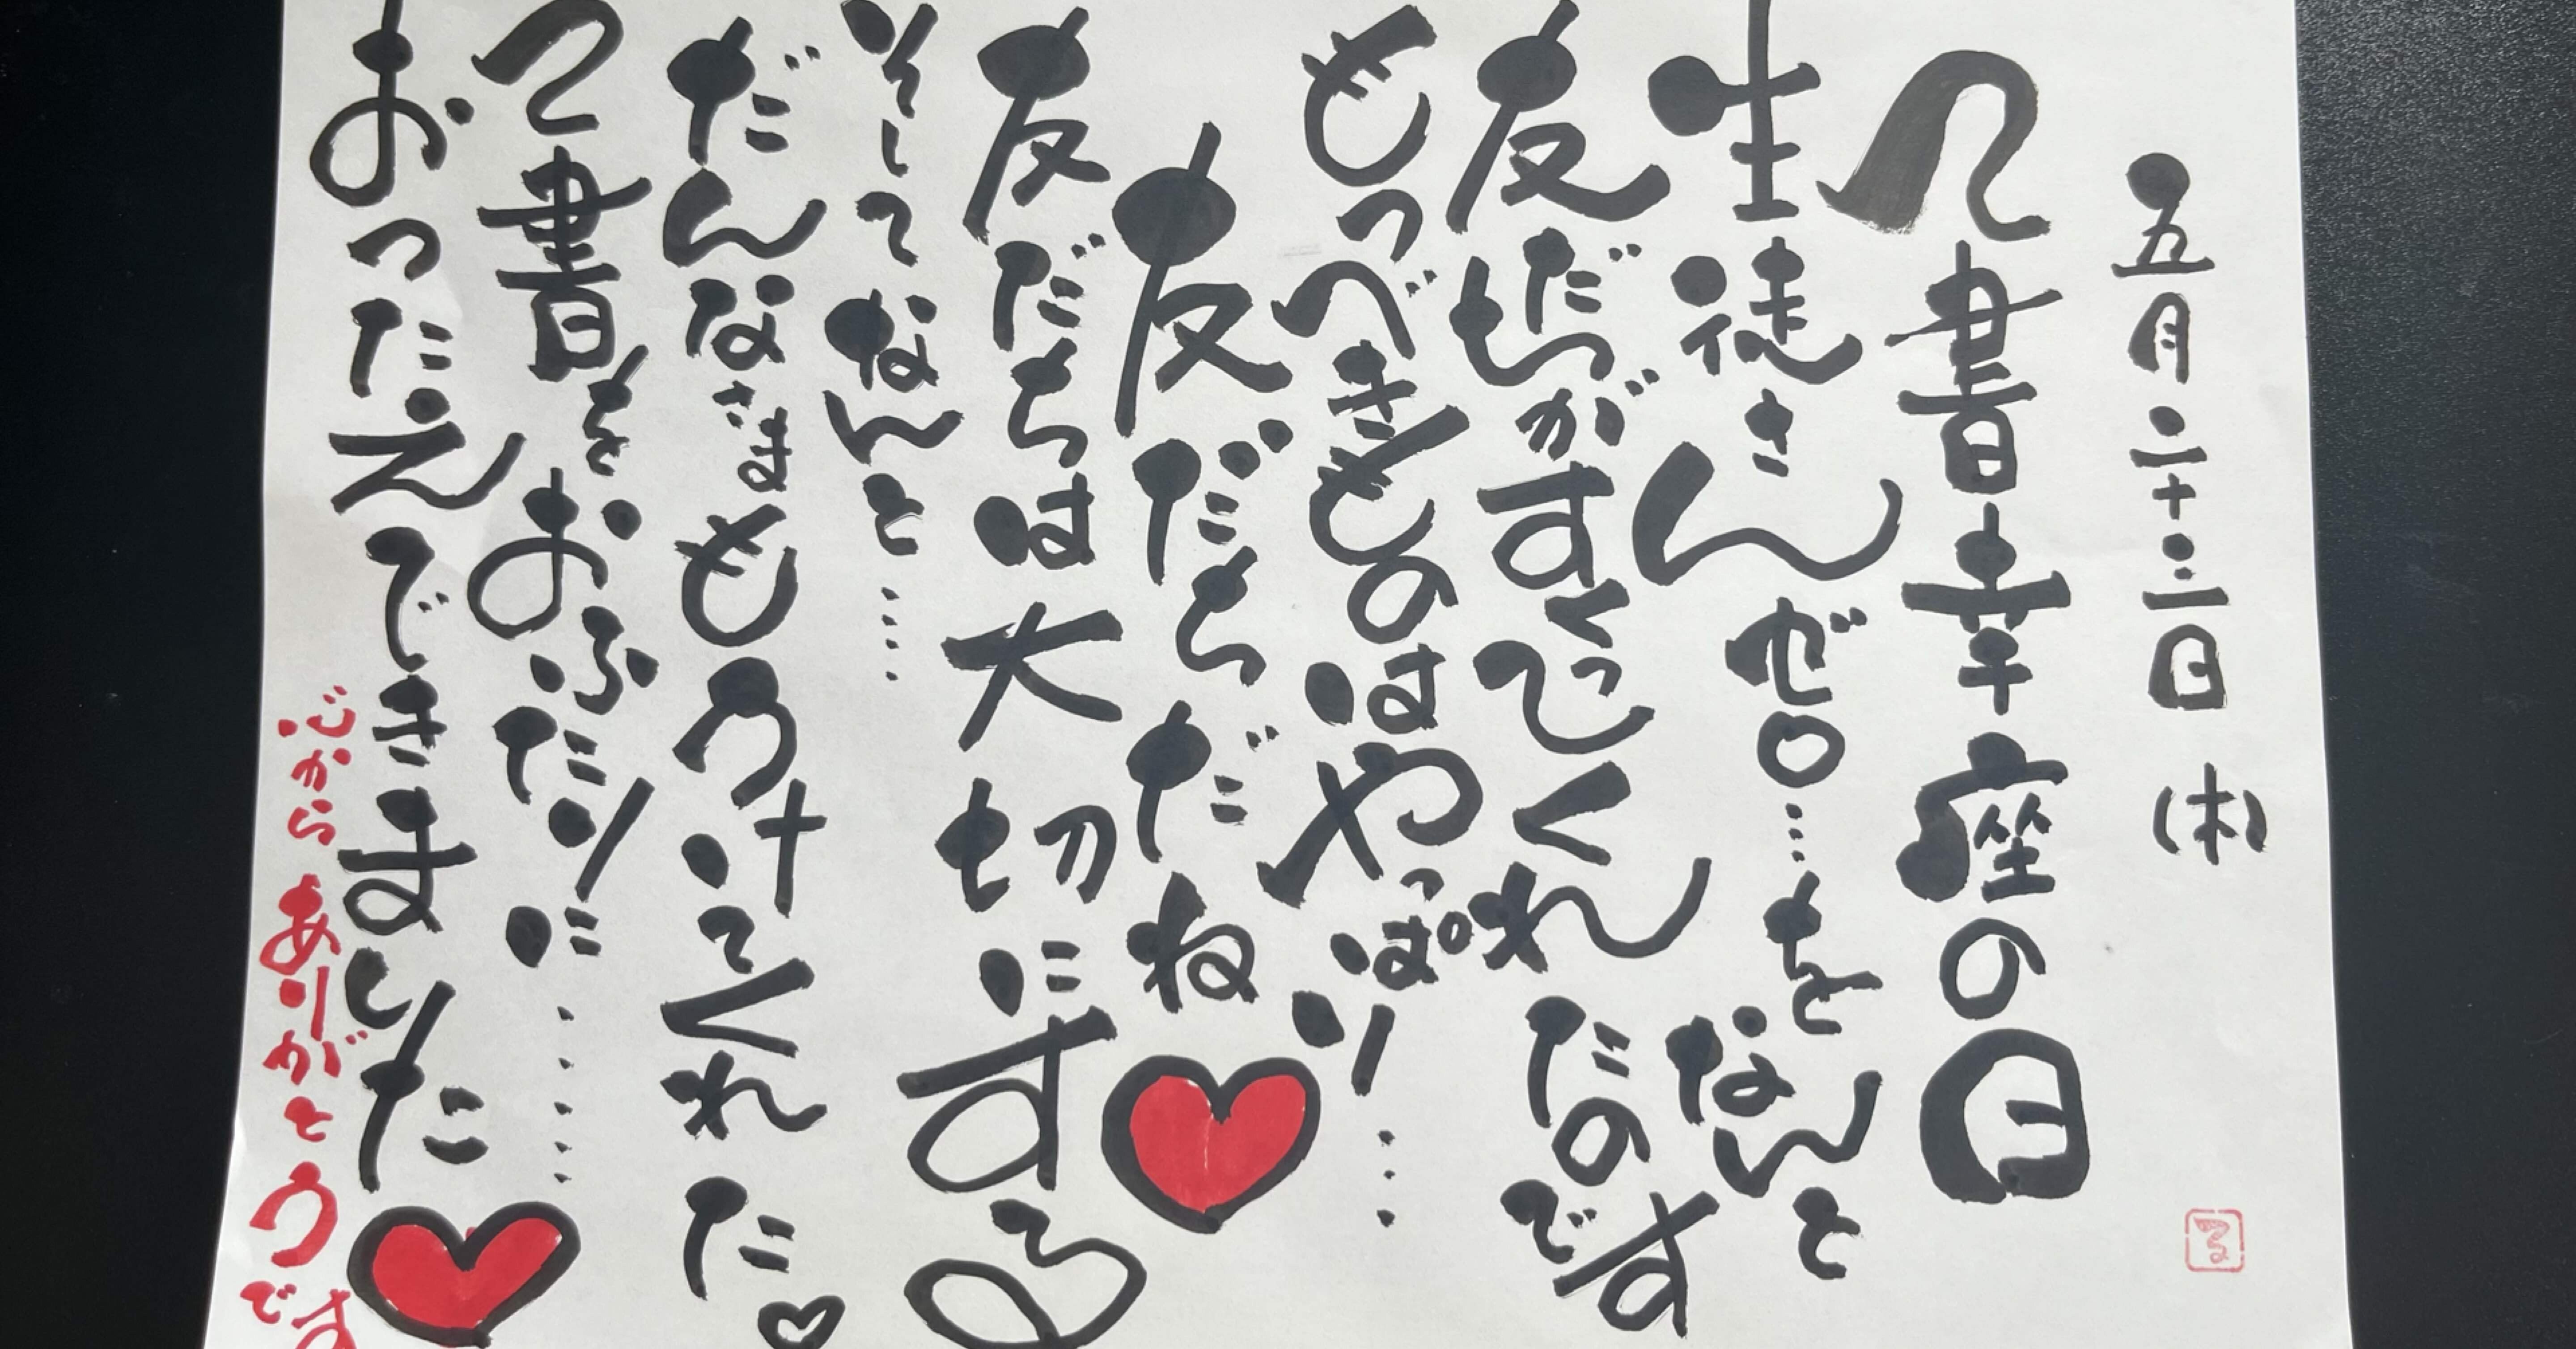 五月二十三日(木)
己書幸座の日
生徒さんゼロ…をなんと
友だちがすくってくれたのです
もつべきものはやっぱり…
友だちだね
友だちは大切にする
そしてなんと……
だんなさまもうけてくれた
己書をおふたりに……
おつたえできました
心からありがとうです
る